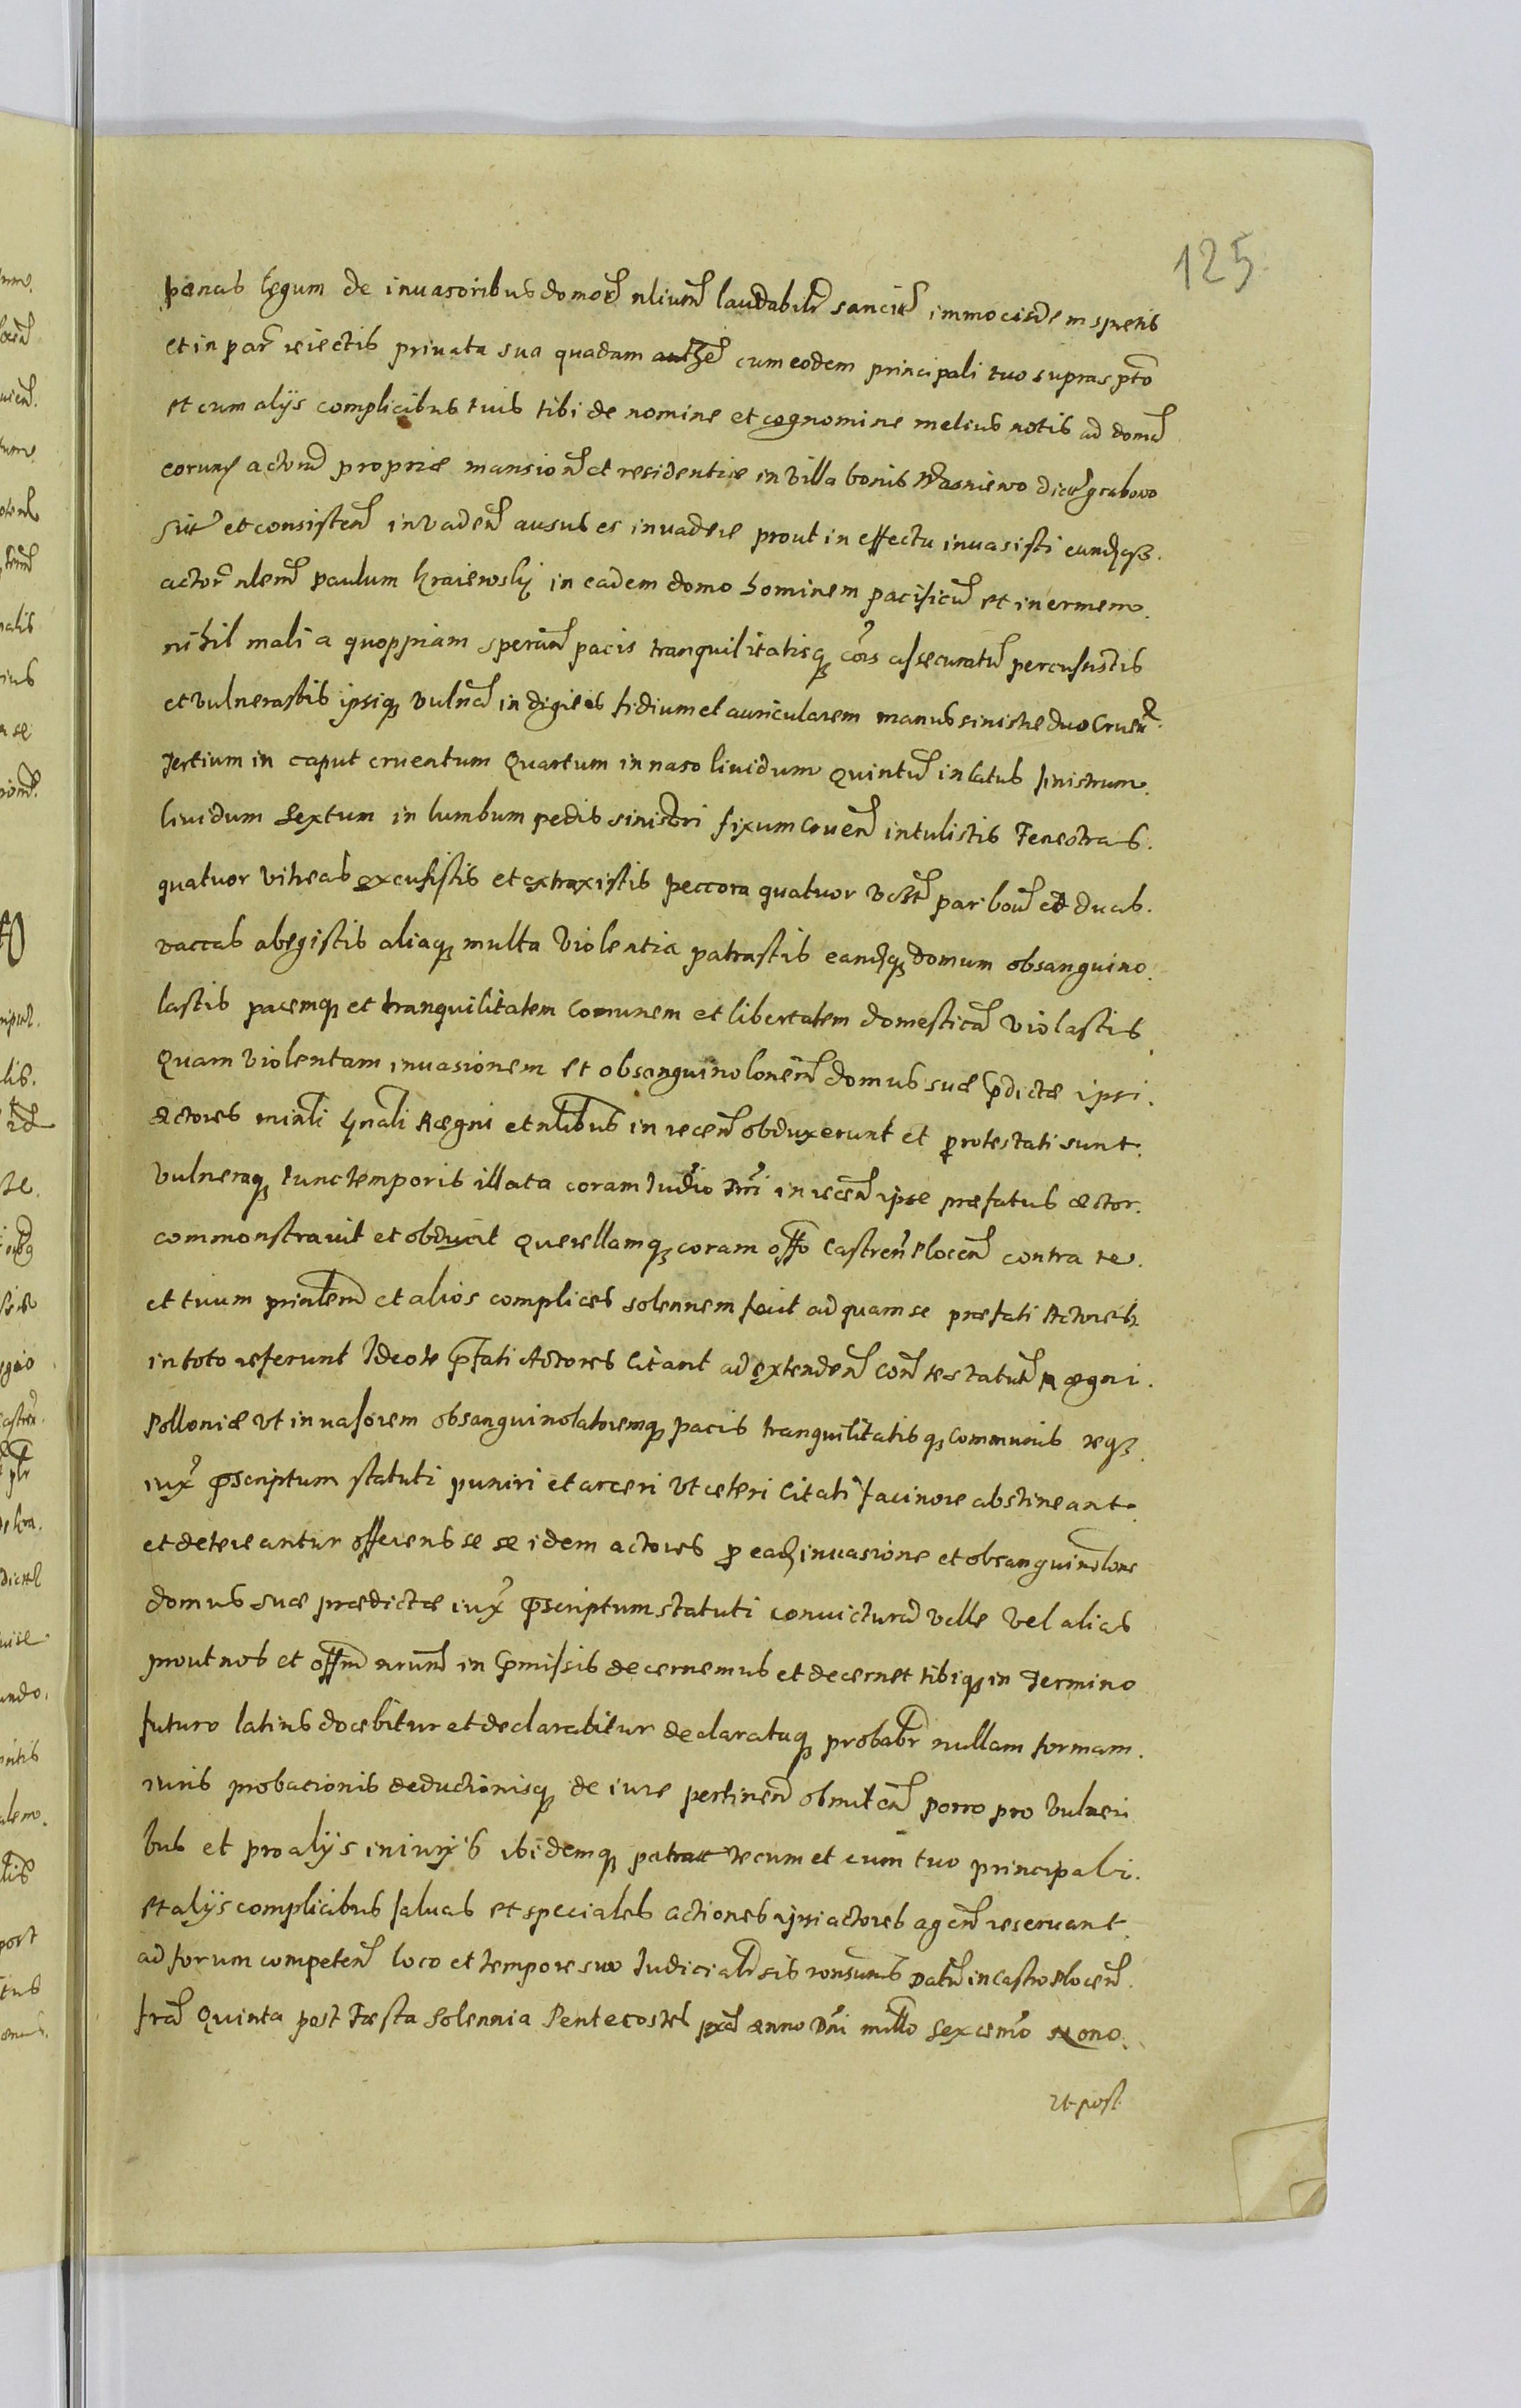 125
pænas legum de inuasoribus domor nlium laudabilr sancit immo eisdem spretis
et in par reiectis priuata sua quadam authe cum eodem principali tuo supraspto
et cum alijs complicibus tuis tibi de nomine et cognomine melius notis ad domu
eorund actoru propriæ mansion et residentiæ in villa bonis Wasniewo dict grabowo
sit et consisten invaden ausus es inuadere prout in effectu inuasisti eundqz.
actor nlem paulum kraiewskj in eadem domo hominem pacificu et inermem.
nihil mali a quoppiam speran pacis tranquilitatisq cois assecuratu percussistis
et vulnerastis ipsiq vulna in digitos fidium et auricularem manus sinistre duo cruen.
Tertium in caput cruentum Quartum in naso liuidum quintu in latus sinistrum.
liuidum Sextum in lumbum pedis sinistri fixum cruen intulistis Fenestras.
quatuor vitreas excussistis et extraxistis peccora quatuor par bou et duas.
vaccas abegistis aliaq multa violentia patrastis eandq domum obsanguino
lastis pacemq et tranquilitatem comunem et libertatem domestica violastis
Quam violentam inuasionem et obsanguinolonem domus suæ pdictæ ipsi.
Actores minli gnali Rægni et nlibus in recen obduxerunt et protestati sunt.
vulneraq tunc temporis illata coram Iudio Dni in recen ipse præfatus actor.
commonstrauit et obduxit querellamq coram offo Castren Plocen contra te.
et tuum prinlem et alios complices solennem fecit ad quam se præfati Actores
in toto referunt Ideo te pfati Actores citant ad extenden con te statum Rægni.
Polloniæ vt inuasorem obsanguinolatoremq pacis tranquilitatisq communis reqz.
iux pscriptum statuti puniri et arceri vt ceteri citati facinore abstineant
et detereantur offerens se se idem actores p ead inuasione et obsanguinolone
domus suæ prædictæ iux pscriptum statuti convicturos velle vel alias
prout nos et offm nrum in pmissis decernemus et decernet tibiq in Termino
futuro latius docebitur et declarabitur declaratuq probabr nullam formam.
iuris probationis deductionisq de iure pertinen obmitten Porro pro vulneri
bus et pro alijs iniurijs ibidemq patrat tecum et cum tuo principali.
et alijs complicibus saluas et speciales actiones ipsi actores agen reseruant.
ad forum competen loco et tempore suo Iudicialr sis Datu in Castro Plocen.
fria Quinta post Fæsta Solennia Pentecostes pxa anno Dni millo sexcento Nono.
vt post